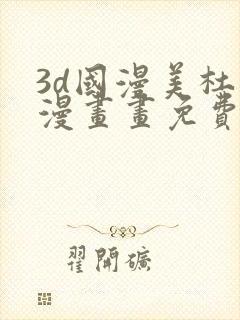 3d國漫美杜
漫畫畫免費
翟開礦